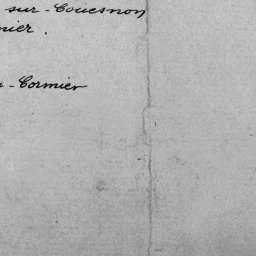 sur-Couesnon
mier.
- Cormier